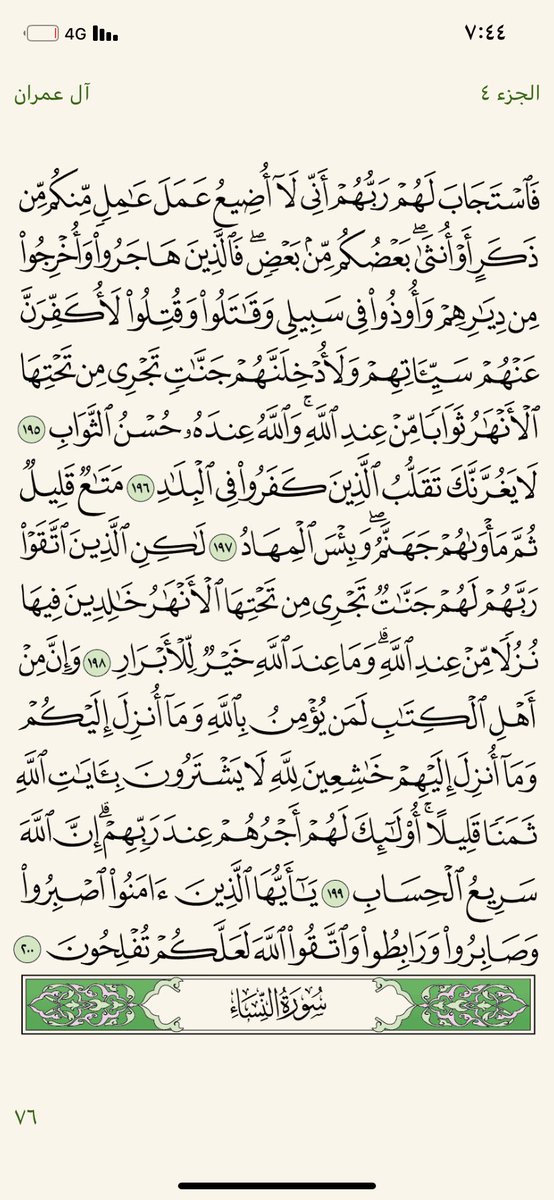 4G ٧:٤٤
الجزء ٤ آل عمران
فَٱسۡتَجَابَ لَهُمۡ رَبُّهُمۡ أَنِّي لَآ أُضِيعُ عَمَلَ عَٰمِلٖ مِّنكُم مِّن
ذَكَرٍ أَوۡ أُنثَىٰۖ بَعۡضُكُم مِّنۢ بَعۡضٖۖ فَٱلَّذِينَ هَاجَرُواْ وَأُخۡرِجُواْ
مِن دِيَٰرِهِمۡ وَأُوذُواْ فِي سَبِيلِي وَقَٰتَلُواْ وَقُتِلُواْ لَأُكَفِّرَنَّ
عَنۡهُمۡ سَيِّـَٔاتِهِمۡ وَلَأُدۡخِلَنَّهُمۡ جَنَّٰتٖ تَجۡرِي مِن تَحۡتِهَا
ٱلۡأَنۡهَٰرُ ثَوَابٗا مِّنۡ عِندِ ٱللَّهِۚ وَٱللَّهُ عِندَهُۥ حُسۡنُ ٱلثَّوَابِ ١٩٥
لَا يَغُرَّنَّكَ تَقَلُّبُ ٱلَّذِينَ كَفَرُواْ فِي ٱلۡبِلَٰدِ ١٩٦ مَتَٰعٞ قَلِيلٞ
ثُمَّ مَأۡوَىٰهُمۡ جَهَنَّمُۖ وَبِئۡسَ ٱلۡمِهَادُ ١٩٧ لَٰكِنِ ٱلَّذِينَ ٱتَّقَوۡاْ
رَبَّهُمۡ لَهُمۡ جَنَّٰتٞ تَجۡرِي مِن تَحۡتِهَا ٱلۡأَنۡهَٰرُ خَٰلِدِينَ فِيهَا
نُزُلٗا مِّنۡ عِندِ ٱللَّهِۗ وَمَا عِندَ ٱللَّهِ خَيۡرٞ لِّلۡأَبۡرَارِ ١٩٨ وَإِنَّ مِنۡ
أَهۡلِ ٱلۡكِتَٰبِ لَمَن يُؤۡمِنُ بِٱللَّهِ وَمَآ أُنزِلَ إِلَيۡكُمۡ
وَمَآ أُنزِلَ إِلَيۡهِمۡ خَٰشِعِينَ لِلَّهِ لَا يَشۡتَرُونَ بِـَٔايَٰتِ ٱللَّهِ
ثَمَنٗا قَلِيلًاۚ أُوْلَٰٓئِكَ لَهُمۡ أَجۡرُهُمۡ عِندَ رَبِّهِمۡۗ إِنَّ ٱللَّهَ
سَرِيعُ ٱلۡحِسَابِ ١٩٩ يَٰٓأَيُّهَا ٱلَّذِينَ ءَامَنُواْ ٱصۡبِرُواْ
وَصَابِرُواْ وَرَابِطُواْ وَٱتَّقُواْ ٱللَّهَ لَعَلَّكُمۡ تُفۡلِحُونَ ٢٠٠
سُورَةُ النِّسَاءِ
٧٦